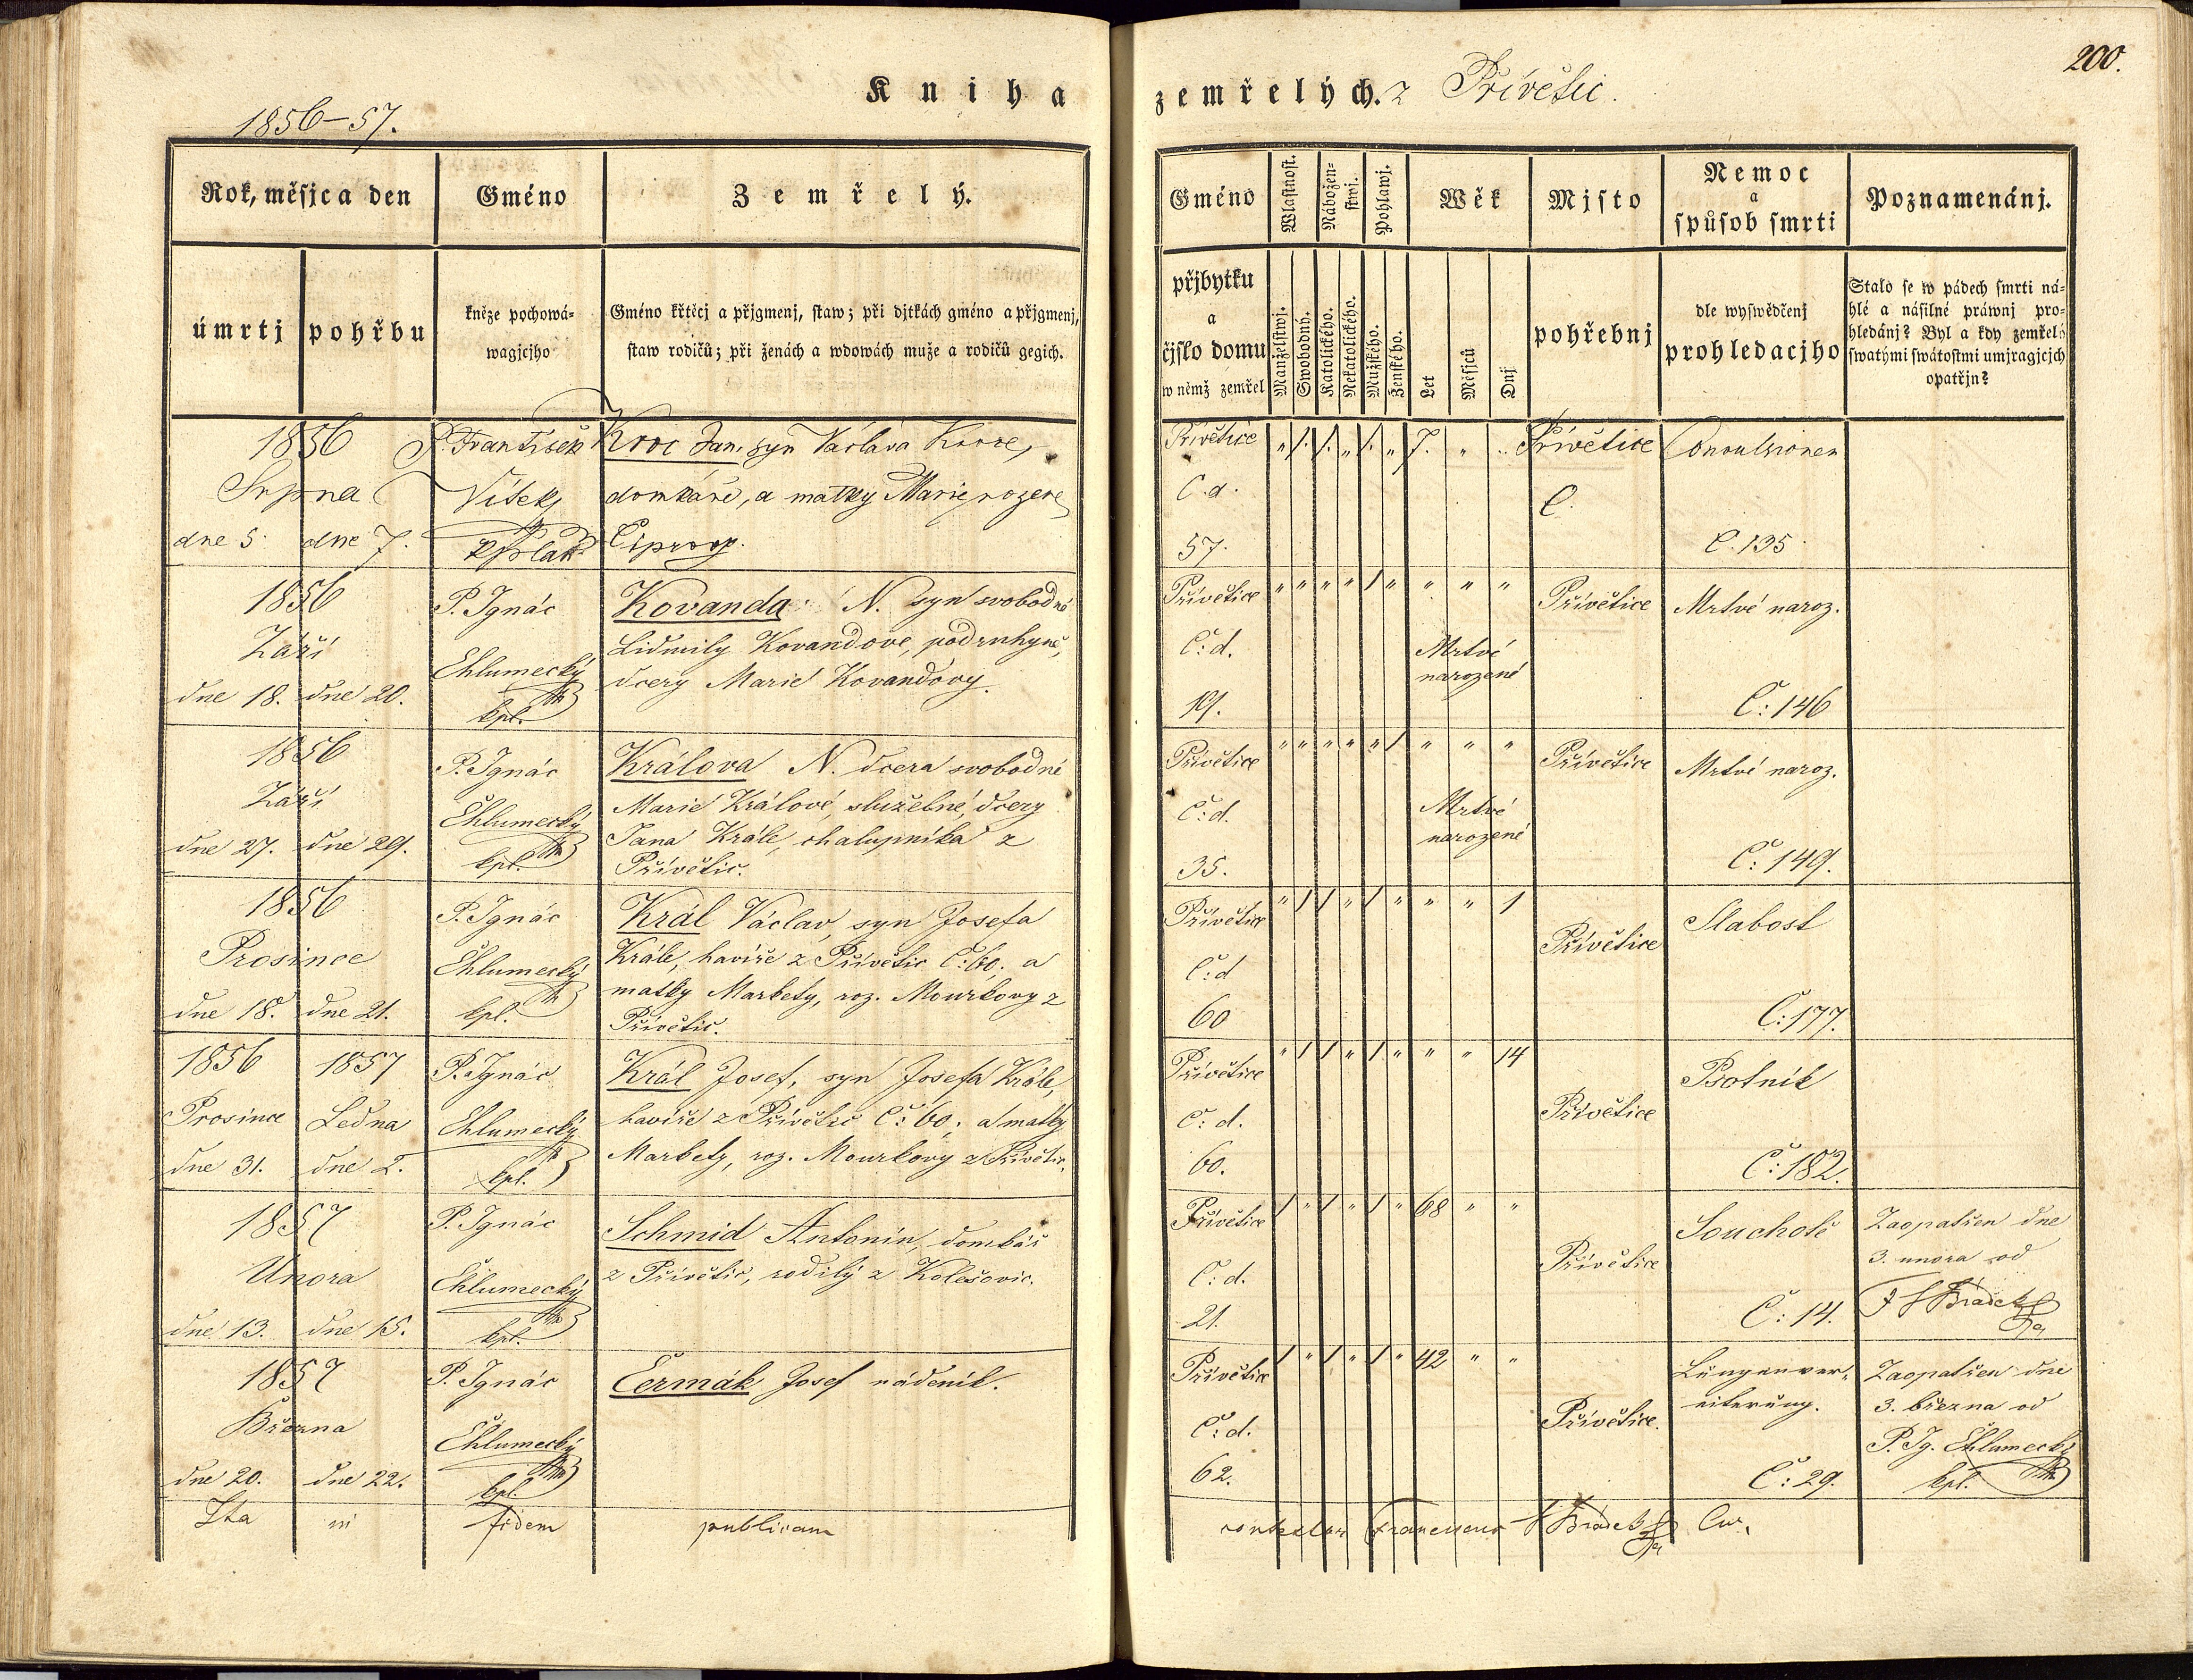 200.
Kniha zemřelých. z Přívětic.
1856-57.
Rok, měsjc a den
Gméno
Zemřelý.
Gméno
Wlastnost.
Nábožen=
stwj.
Pohlawj.
Wěk
Mjsto
Nemoc
a
spůsob smrti
Poznamenánj.
úmrtj
pohřbu
kněze pochowá=
wagjcjho
Gméno křtěcj a přjgmenj, staw; při djtkách gméno a přjgmenj,
staw rodičů; při ženách a wdowách muže a rodičů gegich.
přjbytku
a
čjslo domu
w němž zemřel
Manželstwj.
Swobodný.
Katolického.
Nekatolického.
Mužského.
Ženského.
Let
Měsjců
Dnj
pohřebnj
dle wyswědčenj
prohledacjho
Stalo se w pádech smrti ná=
hlé a násilné práwnj pro=
hledánj? Byl a kdy zemřelý
swatými swátostmi umjragjcjch
opatřjn?
1856
Srpna
dne 5. dne 7.
P. František
Vítek
Kroc Jan, syn Václava Kroce,
domkáře, a matky Marie rozene
Přívětice
Č. d.
57.
" 1. 1. " 1. " 7. " "
Přívětice
Č.
Convulsionen
Č. 135
1856
Září
dne 18. dne 20.
P. Ignác
Chlumecký
kpl.
Kovanda N. syn svobodné
Lidmily Kovandove, podruhyně,
dcery Marie Kovandovy.
Přívětice
Č: d.
19.
" " " " 1 " " " "
Mrtvé
narozené
Přívětice
Mrtvé naroz.
Č: 146
1856
Září
dne 27. dne 29.
P. Ignác
Chlumecký
kpl.
Králova N. dcera svobodné
Marie Králové, služebné, dcery
Jana Krále, chalupníka z
Přívětic.
Přívětice
Č: d.
35.
" " " " " 1 " " "
Mrtvé
narozené
Přívětice
Mrtvé naroz.
Č: 149.
1856
Prosince
dne 18. dne 21.
P. Ignác
Chlumecký
kpl.
Král Václav, syn Josefa
Krále, havíře z Přívětic Č: 60; a
matky Markety, roz. Mourkovy z
Přívětic.
Přívětice
Č: d
60
" 1 1 " 1 " " " 1
Přívětice
Slabost
Č: 177.
1856 1857
Prosince Ledna
dne 31. dne 2.
P. Ignác
Chlumecký
kpl.
Král Josef, syn Josefa Krále,
havíře z Přívětic Č: 60; a matky
Markety, roz. Mourkovy z Přívětic.
Přívětice
Č: d.
60.
" 1 1 " 1 " " " 14
Přívětice
Psotník
Č: 182.
1857
Unora
dne 13. dne 15.
P. Ignác
Chlumecký
kpl.
Schmid Antonín, domkář
z Přívětic, rodilý z Kolešovic.
Přívětice
Č: d.
21.
1 " 1 " 1 " 68 " "
Přívětice
Souchotě
Č: 14.
Zaopatřen dne
3. unora od
1857
Března
dne 20. dne 22.
P. Ignác
Chlumecký
kpl.
Čermák Josef nádeník.
Přívětice
Č: d.
62.
1 " 1 " 1 " 42 " "
Přívětice.
Lungenver=
eiterung.
Č: 29.
Zaopatřen dne
3. března od
P. Ig. Chlumecký
kpl.
Ita in fidem publicam